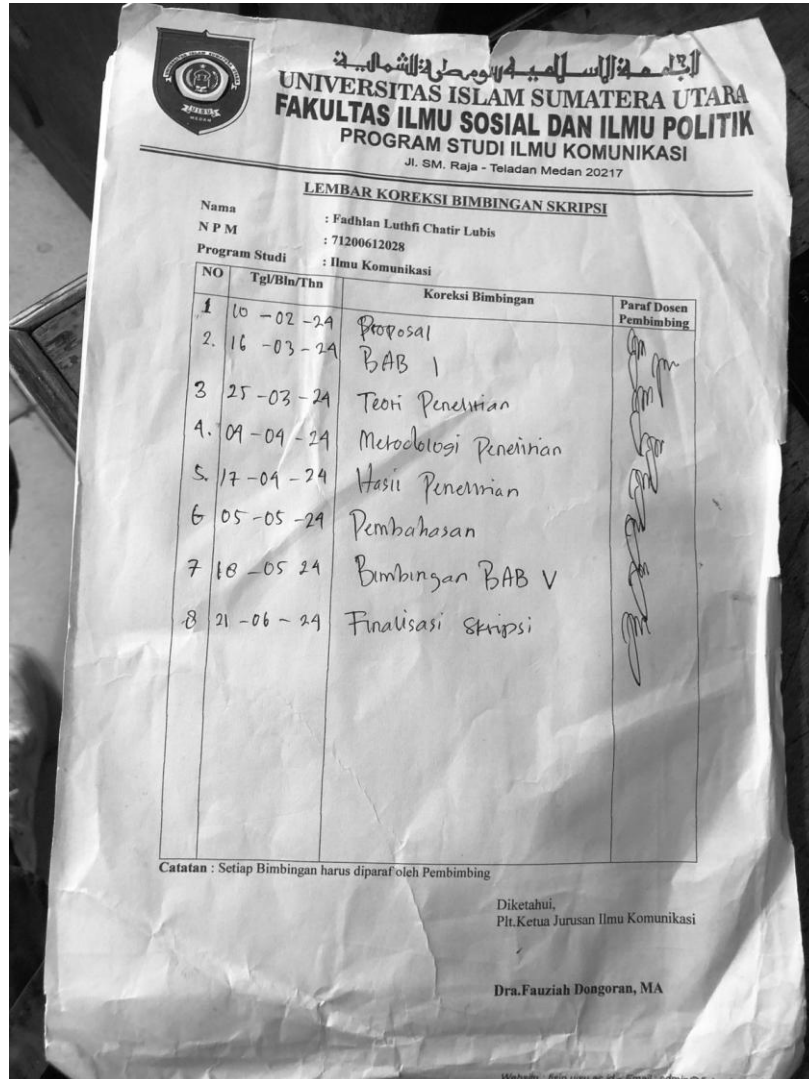 UNIVERSITAS ISLAM SUMATERA UTARA
FAKULTAS ILMU SOSIAL DAN ILMU POLITIK
PROGRAM STUDI ILMU KOMUNIKASI
Jl. SM. Raja - Teladan Medan 20217
LEMBAR KOREKSI BIMBINGAN SKRIPSI
Nama : Fadhlan Luthfi Chatir Lubis
N P M : 71200612028
Program Studi : Ilmu Komunikasi
NO Tgl/Bln/Thn Koreksi Bimbingan Paraf Dosen Pembimbing
1 10 -02 -24 Proposal
2. 16 -03 -24 BAB 1
3 25 -03 -24 Teori Penelitian
4. 04 -04 -24 Metodologi Penelitian
5. 17 -04 -24 Hasil Penelitian
6 05 -05 -24 Pembahasan
7 18 -05 24 Bimbingan BAB V
8 21 -06 - 24 Finalisasi Skripsi
Catatan : Setiap Bimbingan harus diparaf oleh Pembimbing
Diketahui,
Plt.Ketua Jurusan Ilmu Komunikasi
Dra.Fauziah Dongoran, MA